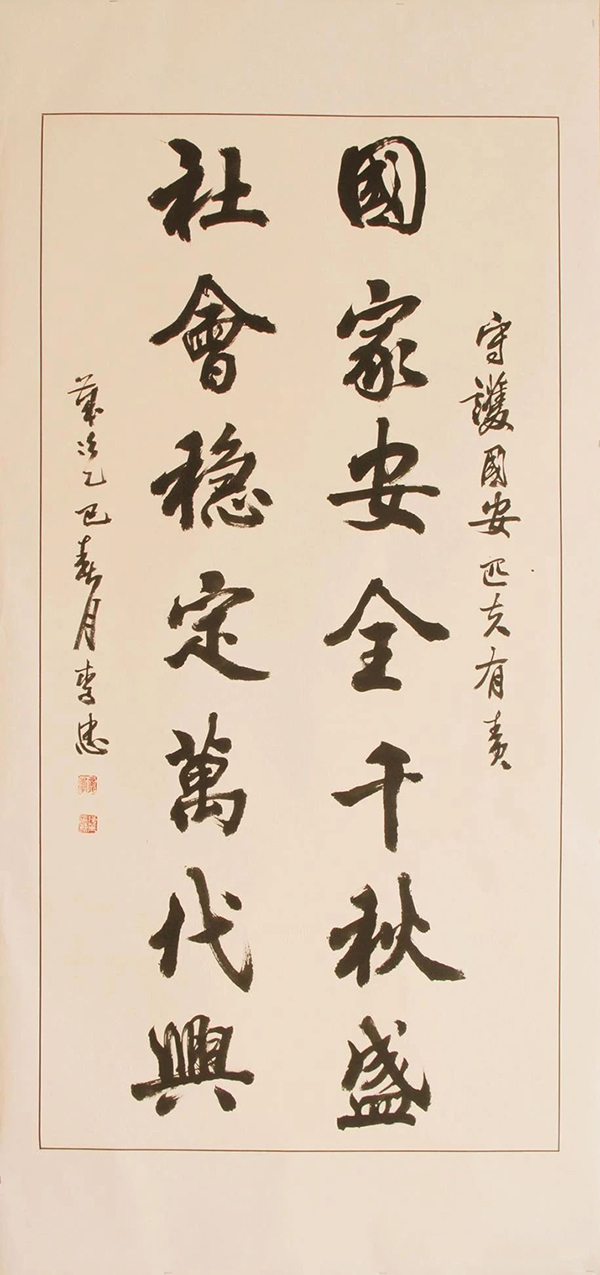 守護國安匹夫有責
國家安全千秋盛
社會穩定萬代興
歲次乙巳春月李忠